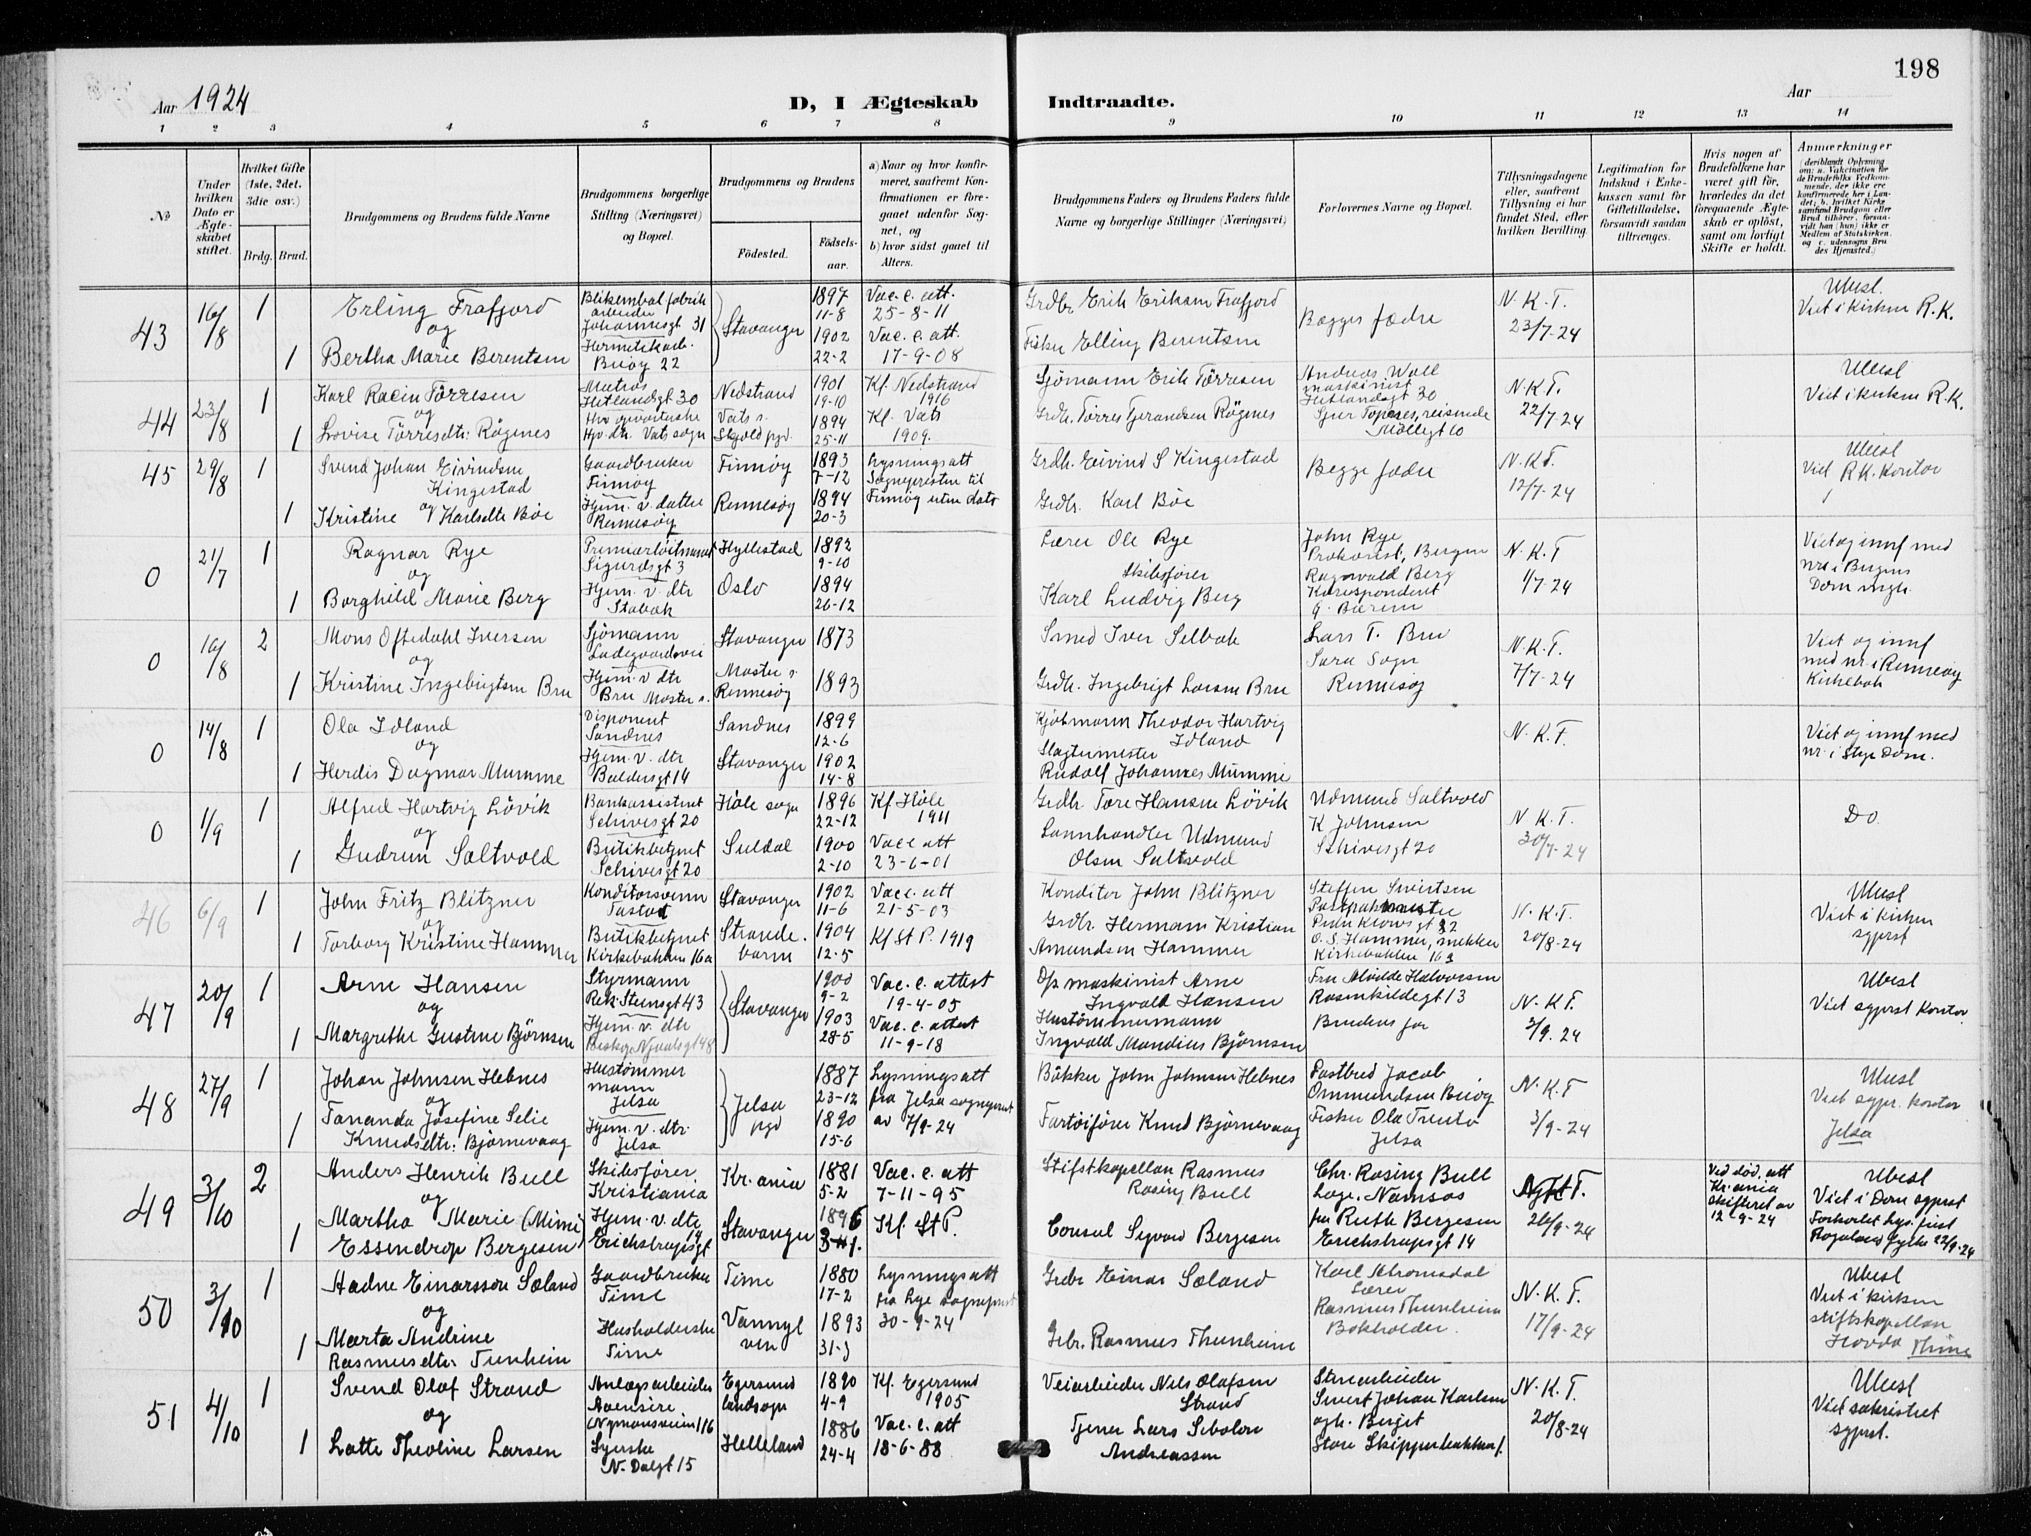 198
Aar 1924
D, I Ægteskab Indtraadte.
Aar
1 2 3 4 5 6 7 8 9 10 11 12 13 14
№
Under hvilken Dato er Ægteskabet stiftet.
Hvilket Gifte (1ste, 2det, 3die osv.)
Brdg. Brud.
Brudgommens og Brudens fulde Navne
Brudgommens borgerlige Stilling (Næringsvei) og Bopæl.
Brudgommens og Brudens
Fødested.
Fødselsaar.
a) Naar og hvor konfirmeret, saafremt Konfirmationen er foregaaet udenfor Sognet, og
b) hvor sidst gaaet til Alters.
Brudgommens Faders og Brudens Faders fulde Navne og borgerlige Stillinger (Næringsvei)
Forlovernes Navne og Bopæl.
Tillysningsdagene eller, saafremt Tillysning ei har fundet Sted, efter hvilken Bevilling.
Legitimation for Indskud i Enkekassen samt for Giftetilladelse, forsaavidt saadan tiltrænges.
Hvis nogen af Brudefolkene har været gift før, hvorledes da det foregaaende Ægteskab er opløst, samt om lovligt Skifte er holdt.
Anmerkninger
43 16/8 1
Erling Frafjord
og
1 Bertha Marie Berentsen
Johannesgt 31
Buøy 22
Stavanger
1897 11-8
1902 22-2
Vac. c. att. 25-8-11
Vac. c. att. 17-9-08
Grdbr Erik Eriksen Frafjord
Fisker Elling Berentsen
Begges fædre
N.K.T. 23/7-24
Ubesl. Viet i kirken R.K.
44 23/8 1
Karl Racin Tørresen
og
1 Lovise Tørresdtr: Røgenes
Matros
Hetlandsgt 30
Hjv. dtr. Vats sogn
Nedstrand
Vats s.
1901 19-10
1894 25-11
Kf. Nedstrand 1916
Kf. Vats 1909.
Sjømann Erik Tørresen
Grdbr. Tørres Gjerandsen Røgenes
Andreas Wall
maskinist
Hetlandsgt 30
N.K.T. 22/7-24
Ubesl Viet i kirken R.K.
45 29/8 1
Svend Johan Eivindsen Kingestad
og
1 Kristine Karlsdtr Bøe
Gaardbruker
Finnøy
Hjem. v. datter
Rennesøy
Finnøy
Rennesøy
1893 7-12
1894 20-3
Lysningsatt Sognepresten til Finnøy uten dato
Grdbr. Eivind S Kingestad
Grdbr. Karl Bøe
Begge fædre
N.K.T. 12/7-24
Ubesl Viet R.K. kontor
0 21/7 1
Ragnar Rye
og
1 Borghild Marie Berg
Premierløitnant
Sigurdsgt 3
Hjem. v. dtr
Stabæk
Hyllestad
Oslo
1892 9-10
1894 26-12
Lærer Ole Rye
Skibsfører
Karl Ludvig Berg
John Rye
Prokurist, Bergen
Ragnvald Berg
Korrespondent
Ø. Bærum
N.K.T 1/7-24
Viet og innf med nr i Bergens Dom mgh.
0 16/8 2
Mons Oftedahl Iversen
og
1 Kristine Ingebrigtsen Bru
Sjømann
Ladegaardsvei
Hjem. v. dtr
Bru Moster s.
Stavanger
Moster s. Rennesøy
1873
1893
Smed Iver Selbak
Grdbr. Ingebrigt Larsen Bru
Lars T. Bru
Sara Sogn
Rennesøy
N.K.T. 7/7-24
Viet og innf med nr. i Rennesøy Kirkebok
0 14/8 1
Ola Idland
og
1 Herdis Dagmar Mumme
Disponent
Sandnes
Hjem. v. dtr
Baldersgt 14
Sandnes
Stavanger
1899 12-6
1902 14-8
Kjøbmann Theodor Hartvig Idland
Slagtermester
Rudolf Johannes Mumme
N.K.T.
Viet og innf med nr. i Stgr Dom.
0 1/9 1
Alfred Hartvig Løvik
og
1 Gudrun Saltvold
Bankassistent
Schivesgt 20
Butikbetjent
Schivesgt 20
Høle sogn
Suldal
1896 22-12
1900 2-10
Kf Høle 1911
Vac c att 23-6-01
Grdbr Tore Hansen Løvik
Lannhandler Udmund Olsen Saltvold
Udmund Saltvold
K Johnsen
Schivesgt 20
N.K.T. 30/7-24
Do
46 6/9 1
John Fritz Blitzner
og
1 Torborg Kristine Hammer
Konditorsvenn
Tasta
Butikbetjent
Kirkebakken 16a
Stavanger
Strandebarm
1902 11-6
1904 12-5
Vac. c. att 21-5-03
Kf St P. 1919
Konditor John Blitzner
Grdbr. Hermann Kristian Amundsen Hammer
Steffen Sivertsen
O. S. Hammer, mekker
Kirkebakken 16a
N.K.T. 20/8-24
Ubesl Viet i kirken sgprst
47 20/9 1
Arne Hansen
og
1 Margrethe Gustine Bjørnsen
Styrmann
Rek. Steensgt 43
Hjem. v. dtr
Stavanger
1900 9-2
1903 28-5
Vac. c. attest 19-4-05
Vac. c. attest 11-9-18
Op maskinist Arne Ingvald Hansen
Hustømmermann
Ingvald Mandius Bjørnsen
Fru Alvilde Halvorsen
Rosenkildegt 13
Brudens far
N.K.T. 2/9-24
Ubesl Viet sgprst kontor.
48 27/9 1
Johan Johnsen Hebnes
og
1 Tananda Josefine Selie Knudsdtr: Bjørnevaag
Hustømmermann
Jelsa
Hjem. v. dtr.
Jelsa
Jelsa pgd
1887 23-12
1890 15-6
Lysningsatt fra Jelsa sogneprest av 7/9-24
Bøkker John Johnsen Hebnes
Fartøifører Knud Bjørnevaag
Postbud Jacob Ommundsen Buøy
Fisker Ola
Jelsa
N.K.T 3/9-24
Ubesl Viet sgpr. kontor Jelsa
49 3/10 2
Anders Henrik Bull
og
1 Martha Marie (Mimi) Essendrop Bergesen
Skibsfører
Kristiania
Hjem. v. dtr
Erichstrupsgt 19
Kr.ania
Stavanger
1881 5-2
1896
Vac. c. att 7-11-95
Kf. St P.
Stiftskapellan Rasmus Rosing Bull
Consul Sigvard Bergesen
Chr. Rosing Bull
Læge. Namsos
fru Ruth Bergesen
Erichstrupsgt 14
N.K.T. 26/9-24
Ved død. att Kr.ania skifteret av 12-9-24
Ubesl Viet i Dom sgprst Forkortet lys. frist Rogaland fylke 22/9-24
50 3/10 1
Hadne Einarsson Sæland
og
1 Marta Andrine Rasmusdtr. Tunheim
Gaardbruker
Time
Husholderske
Time
Time
Vannylven
1880 17-2
1893 31-3
Lysningsatt fra Lye sogneprest 30-9-24
Grbr Einar Sæland
Gbr. Rasmus Thunheim
Karl Stromsdal
Lærer
Rasmus Thunheim
Bokholder
N.K.T. 17/9-24
Ubesl Viet i kirken stiftskapellan Hovda Thime
51 4/10 1
Svend Olaf Strand
og
1 Lotte Theoline Larsen
Anlægsarbeider
Aaensire
Nymansveien 116
Syerske
N. Dalgt 15
Egersund landsogn
Helleland
1890 4-9
1886 24-4
Kf. Egersund 1905
Vac. c. att 18-6-88
Veiarbeider Nils Olafsen Strand
Tjener Lars Sibolon Andreassen
Stenarbeider
Sivert Johan Karlsen
Store Skippersbakken 1.
N.K.T. 20/8-24
Ubesl Viet sakristiet sgprst.